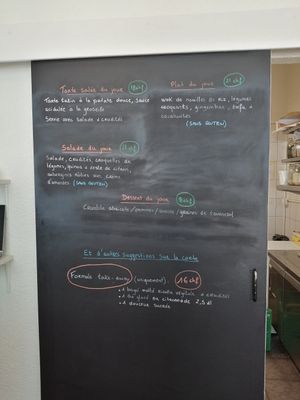 Tarte salée du jour 18 chf
Tarte tatin à la patate douce, sauce
acidulée à la groseille
Servie avec salade & crudités
Plat du jour 21 chf
Wok de nouilles de riz, légumes
croquants, gingembre, tofu &
cacahuètes
(SANS GLUTEN)
Salade du jour
Salade, crudités, croquettes de
légumes, quinoa & zeste de citron,
aubergines rôties aux
d'amandes (SANS GLUTEN)
Dessert du jour 8 chf
Crumble abricots / pommes / / graines de tournesol
Et d'autres suggestions sur la carte
Formule take-away (uniquement) 16 chf
• 1 végétale & crudités
• 1 thé glacé ou citronnade 2,5 dl
• 1 douceur sucrée